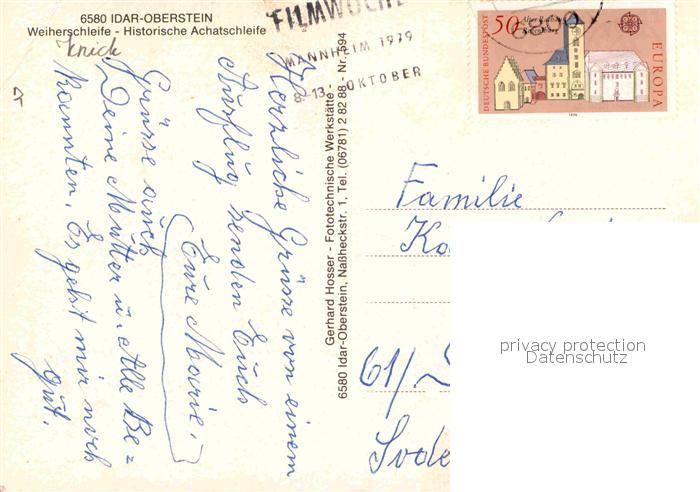 6580 IDAR-OBERSTEIN
Weiherschleife - Historische Achatschleife
Knick
FILMWOCHE
MANNHEIM 1979
8.-13. OKTOBER
6800
50
DEUTSCHE BUNDESPOST
Altes Rathaus
Regensburg
EUROPA
1978
Herzliche Grüsse von einem
Ausflug senden Euch
Eure Marie.
Grüsse auch
Deine Mutter u. Alle Be=
kannten. Es geht mir noch
gut.
Gerhard Hosser - Fototechnische Werkstätte -
6580 Idar-Oberstein, Naßheckstr. 1, Tel. (06781) 2 82 88 - Nr. 594
Familie
Ko
61/
privacy protection
Datenschutz